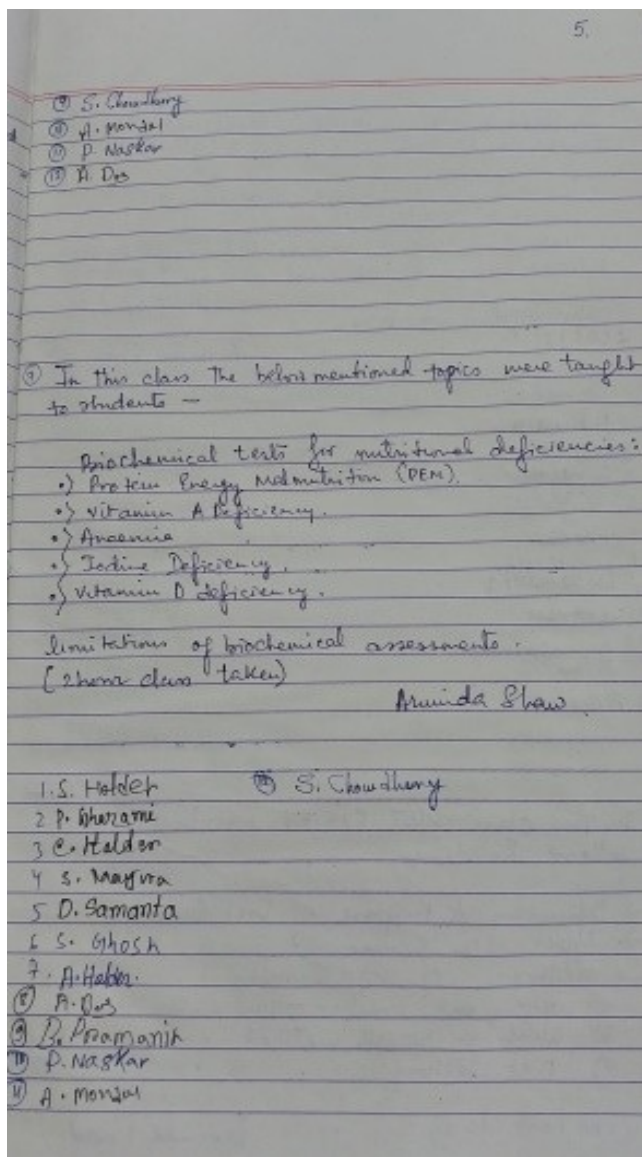 5.
⑨ S. Chowdhury
⑩ A. Mondal
⑪ P. Naskar
⑫ A. Das
⑦ In this class the below mentioned topics were taught
to students —
Biochemical tests for nutritional deficiencies:
•) Protein Energy Malnutrition (PEM).
•) Vitamin A Deficiency.
•) Anaemia
•) Iodine Deficiency.
•) Vitamin D deficiency.
limitations of biochemical assessments.
(2 hour class taken)
Arunida Shaw
1. S. Halder
⑫ S. Chowdhury
2 P. Gharami
3 C. Halder
4 S.
5 D. Samanta
6 S. Ghosh
7. A. Halder.
⑧ A. Das
⑨ B. Pramanik
⑩ P. Naskar
⑪ A. Mondal